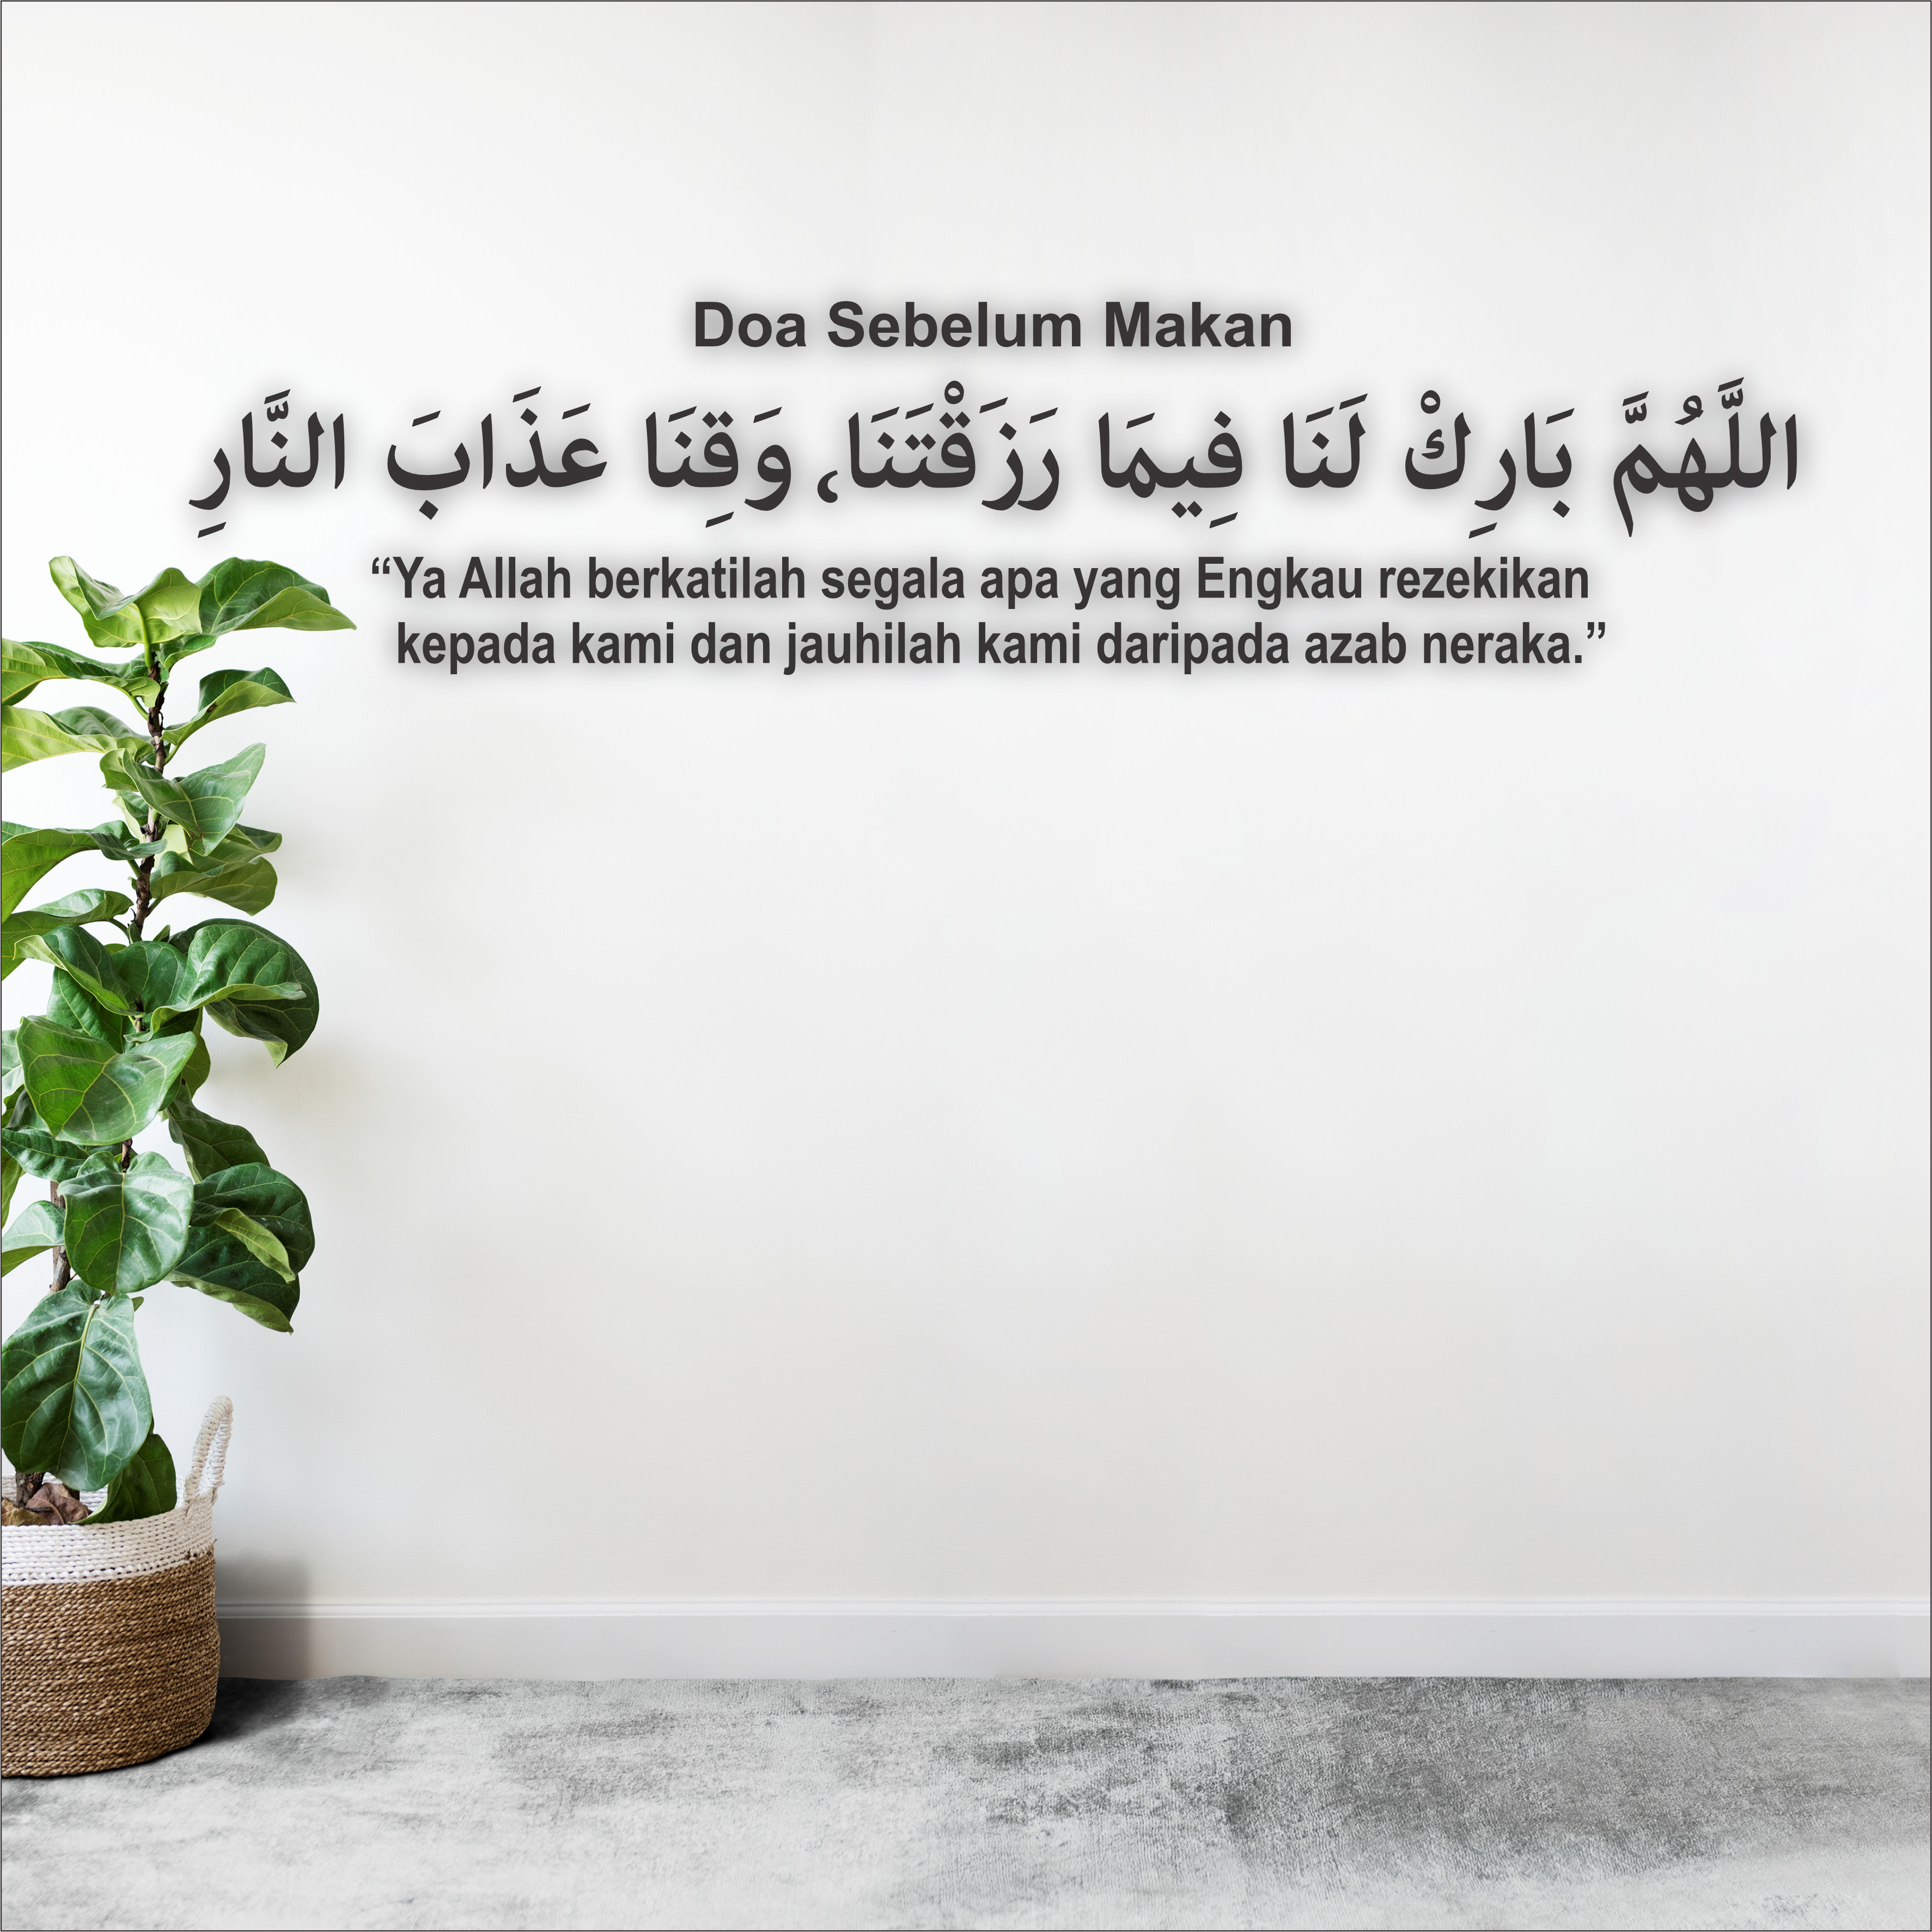 Doa Sebelum Makan
اللَّهُمَّ بَارِكْ لَنَا فِيمَا رَزَقْتَنَا، وَقِنَا عَذَابَ النَّارِ
“Ya Allah berkatilah segala apa yang Engkau rezekikan
kepada kami dan jauhilah kami daripada azab neraka.”